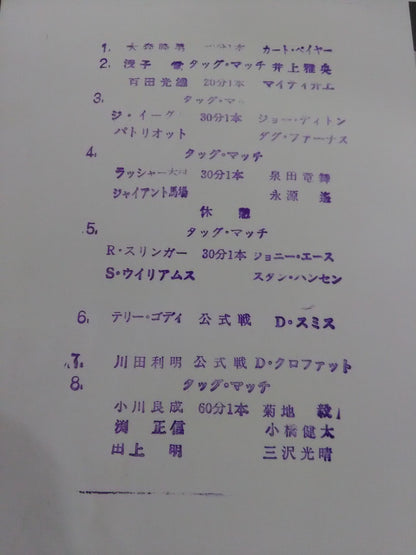 1. 大森隆男 分1本 カート・ベイヤー
2. 浅子 覚 タッグ・マッチ 井上雅央
百田光雄 20分1本 マイティ井上
3. タッグ・マッ
ジ・イーグ 30分1本 ジョー・ディトン
パトリオット ダグ・ファーナス
4. タッグ・マッチ
ラッシャー木村 30分1本 泉田竜舞
ジャイアント馬場 永源 遙
休 憩
5. タッグ・マッチ
R・スリンガー 30分1本 ジョニー・エース
S・ウイリアムス スタン・ハンセン
6. テリー・ゴディ 公式戦 D・スミス
7. 川田利明 公式戦 D・クロファット
8. タッグ・マッチ
小川良成 60分1本 菊地 毅
渕 正信 小橋健太
田上 明 三沢光晴